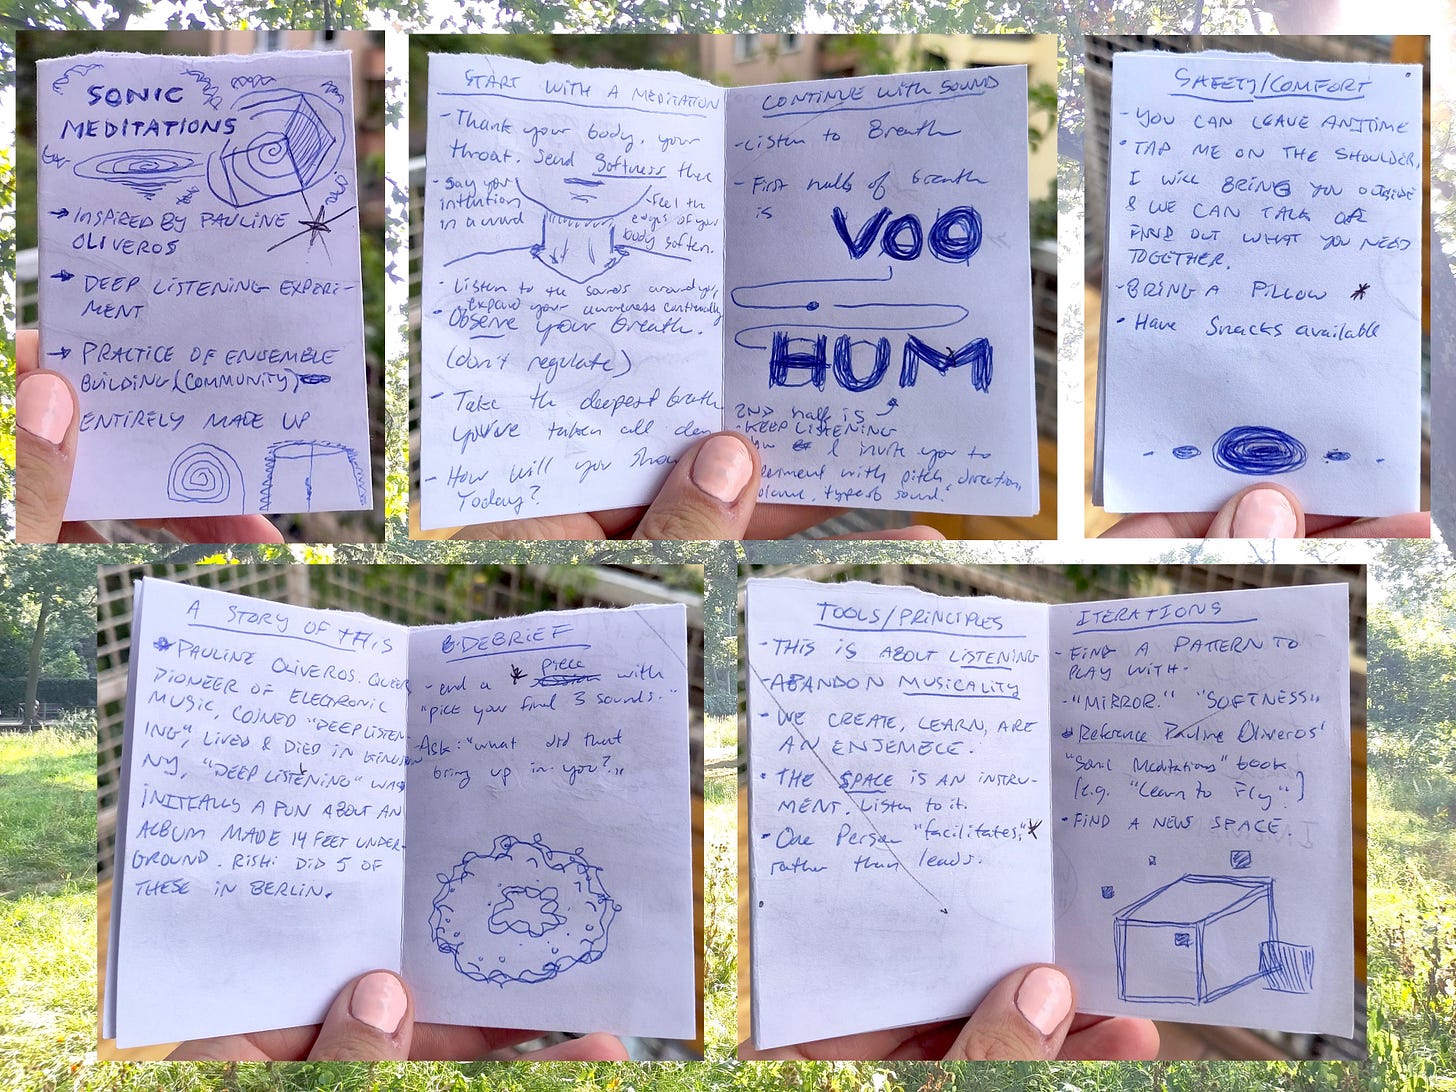 SONIC
MEDITATIONS
→ INSPIRED BY PAULINE
OLIVEROS
→ DEEP LISTENING EXPERI-
MENT
→ PRACTICE OF ENSEMBLE
BUILDING (COMMUNITY)
ENTIRELY MADE UP
START WITH A MEDITATION
- Thank your body, your
throat. Send Softness there
- Say your
intention
in a word
- feel the
edges of your
body soften.
- Listen to the sounds around you,
expand your awareness continually
- Observe your breath.
(don't regulate)
- Take the deepest breath
you've taken all day
- How will you show
Today?
CONTINUE WITH SOUND
- Listen to Breath
- First half of breath
is
VOO
HUM
2ND half is
- KEEP LISTENING
I invite you to
experiment with pitch, direction,
volume, type of sound.
SAFETY/COMFORT
- YOU CAN LEAVE ANYTIME
• TAP ME ON THE SHOULDER,
I WILL BRING YOU OUTSIDE
& WE CAN TALK OR
FIND OUT WHAT YOU NEED
TOGETHER.
- BRING A PILLOW *
• Have Snacks available
A STORY OF THIS
PAULINE OLIVEROS. QUEER
PIONEER OF ELECTRONIC
MUSIC, COINED "DEEP LISTEN-
ING", LIVED & DIED IN KINGSTON
NY, "DEEP LISTENING" WAS
INITIALLY A PUN ABOUT AN
ALBUM MADE 14 FEET UNDER-
GROUND. RISHI DID 5 OF
THESE IN BERLIN.
DEBRIEF
- end a * piece with
"pick your final 3 sounds."
- Ask: "what did that
bring up in you?"
TOOLS/PRINCIPLES
- THIS IS ABOUT LISTENING
- ABANDON MUSICALITY
• WE CREATE, LEARN, ARE
AN ENSEMBLE.
• THE SPACE IS AN INSTRU-
MENT. Listen to it.
• One Person "facilitates," *
rather than leads.
ITERATIONS
- FIND A PATTERN TO
PLAY WITH.
- "MIRROR." "SOFTNESS"
• Reference Pauline Oliveros'
"Sonic Meditations" book
(e.g. "Learn to Fly")
• FIND A NEW SPACE.